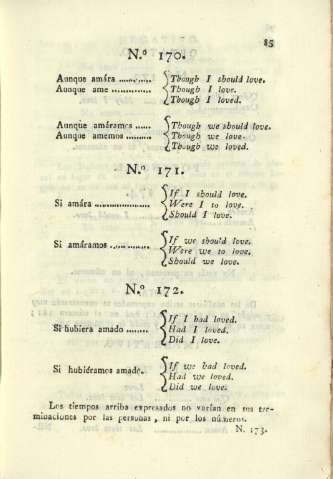 85
N.º 170.
Aunque amára ............ { Though I should love.
Aunque ame .............. { Though I love.
Though I loved.
Aunque amáramos ...... { Though we should love.
Aunque amemos ......... { Though we love.
Though we loved.
N.º 171.
If I should love.
Si amára .................... { Were I to love.
Should I love.
If we should love.
Si amáramos ............. { Were we to love.
Should we love.
N.º 172.
If I had loved.
Si hubiera amado ........ { Had I loved.
Did I love.
If we had loved.
Si hubiéramos amado.. { Had we loved.
Did we love.
Los tiempos arriba expresados no varían en sus ter-
minaciones por las personas, ni por los números.
N. 173.